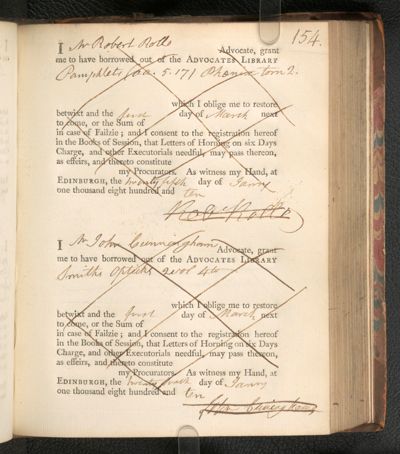 154.
I Mr Robert Rolls Advocate, grant
me to have borrowed out of the ADVOCATES LIBRARY
Pamphlets 5. 171 tom 2.
which I oblige me to restore
betwixt and the first day of March next
to come, or the Sum of
in case of Failzie; and I consent to the registration hereof
in the Books of Session, that Letters of Horning on six Days
Charge, and other Executorials needful, may pass thereon,
as effeirs, and thereto constitute
my Procurators. As witness my Hand, at
EDINBURGH, the twenty fifth day of Janry
one thousand eight hundred and ten
I Mr John Cunningham Advocate, grant
me to have borrowed out of the ADVOCATES LIBRARY
Smiths Opticks 2 vol 4to
which I oblige me to restore
betwixt and the first day of March next
to come, or the Sum of
in case of Failzie; and I consent to the registration hereof
in the Books of Session, that Letters of Horning on six Days
Charge, and other Executorials needful, may pass thereon,
as effeirs, and thereto constitute
my Procurators. As witness my Hand, at
EDINBURGH, the day of Janry
one thousand eight hundred and ten
John Cuningham